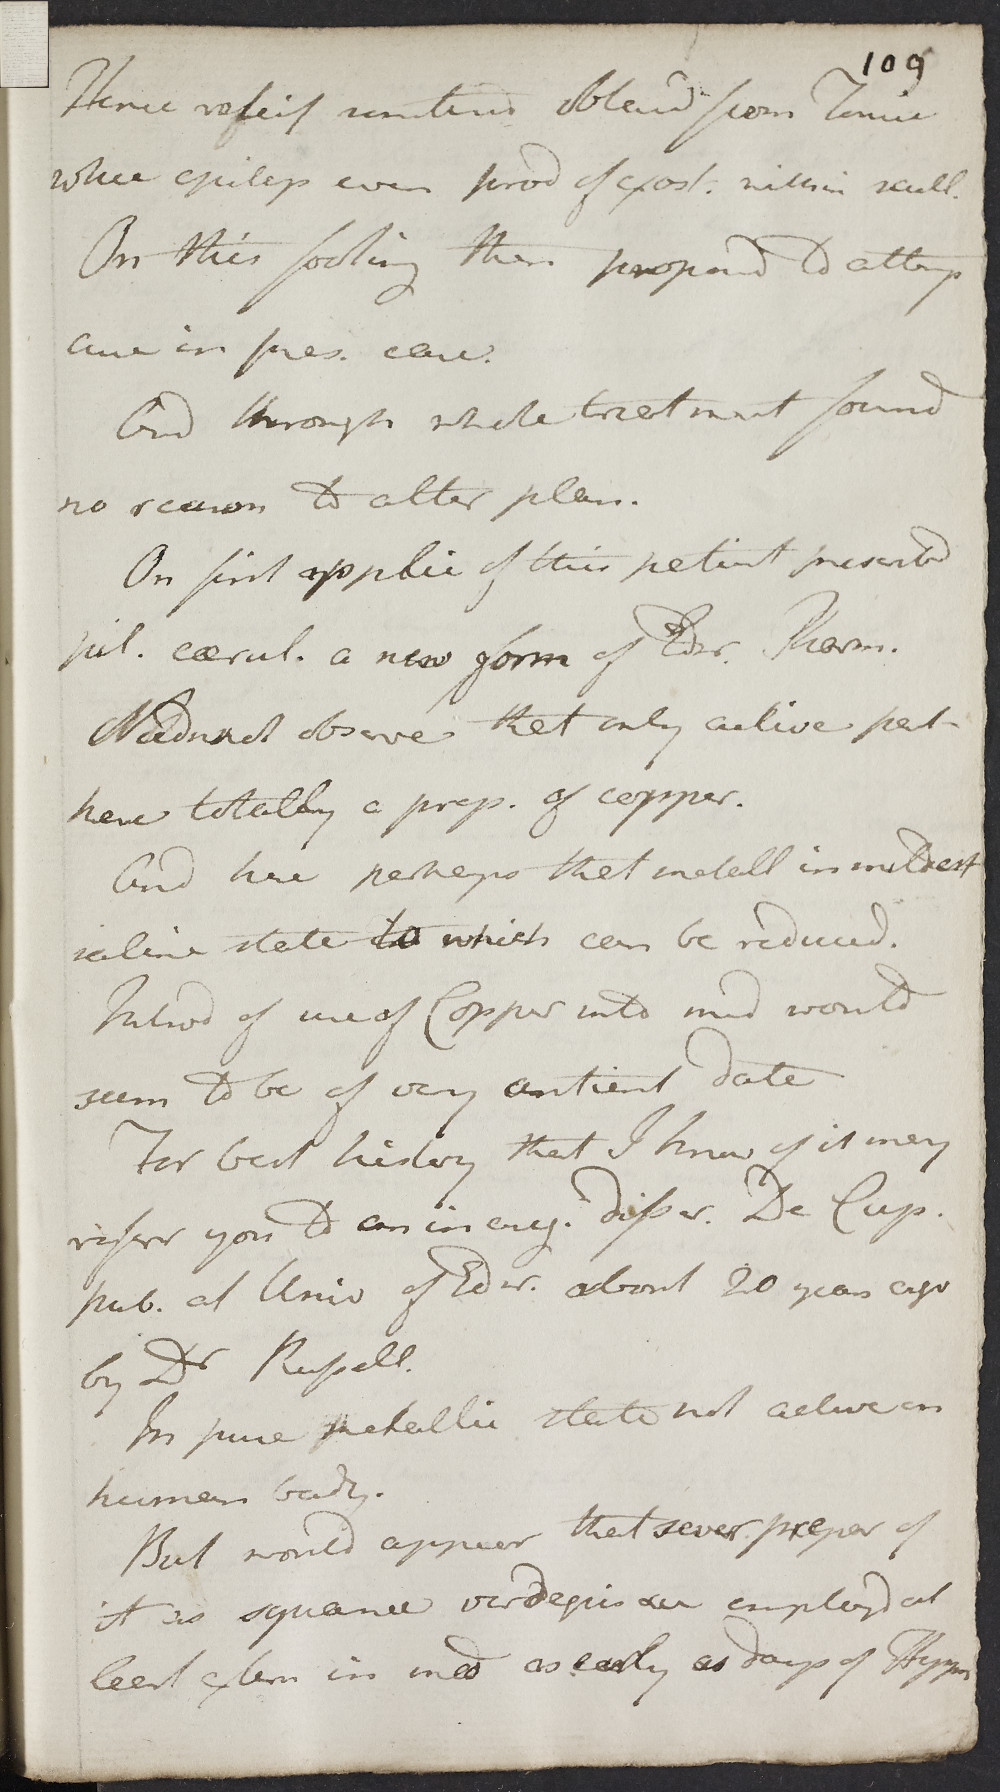 109
Hence releif sometimes obtaind from Tonics
where epileps even prod of exost. within scull.
On this footing then propond to attemp
cure in pres. case.
And through whole treatment found
no reason to alter plan.
On first applic of this patient prescribd
pil. cærul. a new form of Edr. Pharm.
Neednot observe that only active part
here totally a prep. of copper.
And here perhaps that metall in mildest
saline state to which can be reduced.
Introd of use of Copper into med would
seem to be of very antient date
For best history that I know of it may
referr you to an inaug. disser. De Cup.
pub. at Univ of Edr. about 20 years ago
by Dr Russell.
In pure metallic state not active on
human body.
But would appear that sever. prepar of
it as squamæ verdegris æ employd at
least extern in med as early as days of Hypp